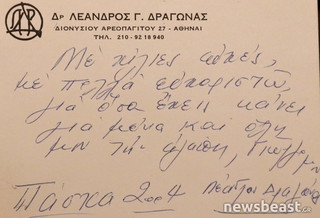 Δρ ΛΕΑΝΔΡΟΣ Γ. ΔΡΑΓΩΝΑΣ
ΔΙΟΝΥΣΙΟΥ ΑΡΕΟΠΑΓΙΤΟΥ 27 - ΑΘΗΝΑΙ
ΤΗΛ. 210 - 92 18 940
Με χίλιες ευχές,
με πολλά ευχαριστώ,
για όσα έχεις κάνει
για μένα και όλη
μου την αγάπη,
Πάσχα 2004 Λέανδρος Δραγώνας
newsbeast